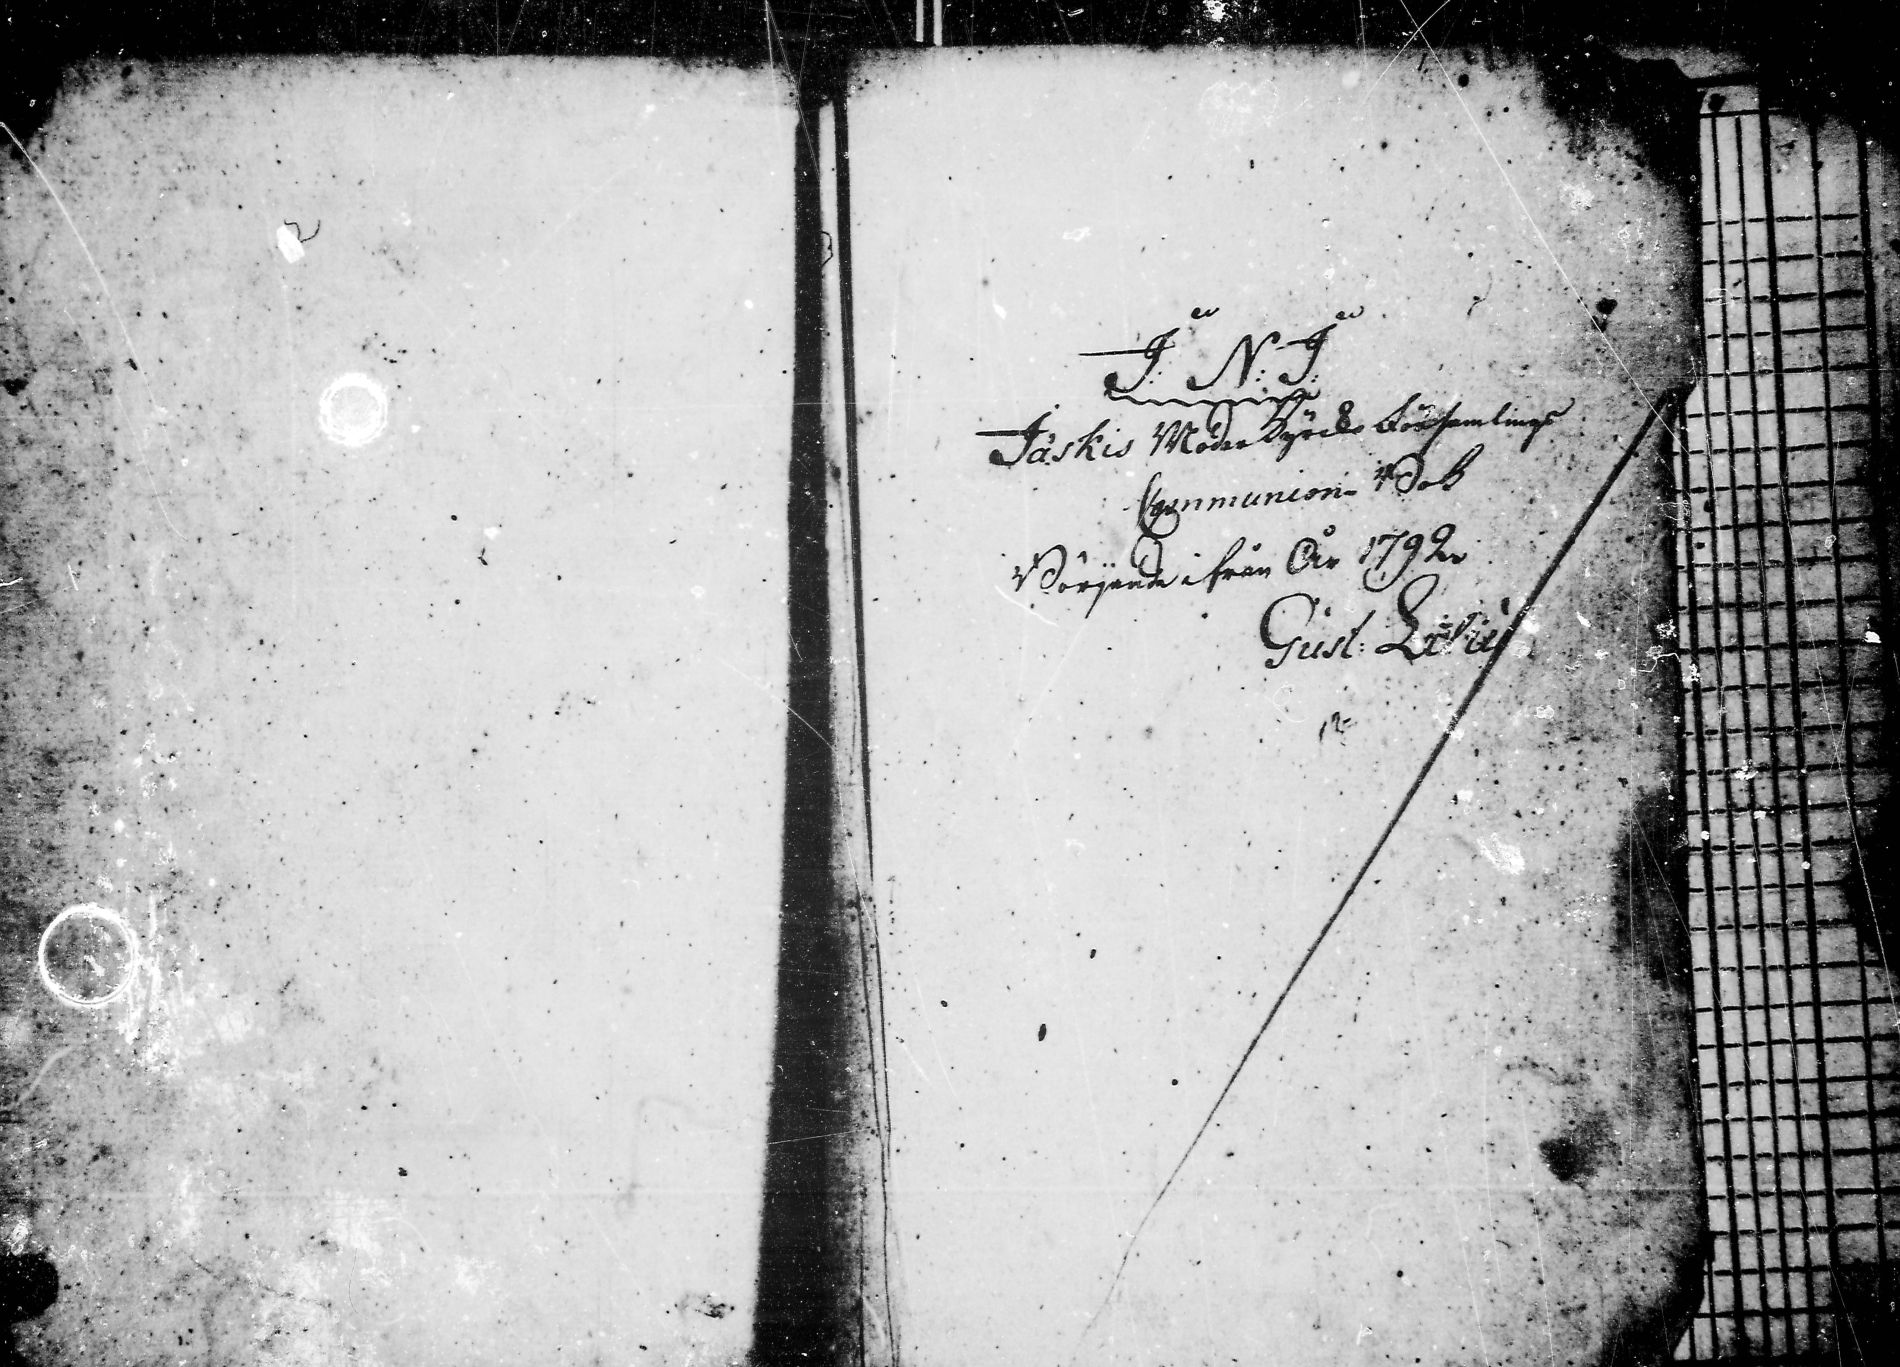 J: N: J:
Jäskis Moder Kyrcko Församlings
Communion-Bok
Börjande ifrån År 1792
Gust: